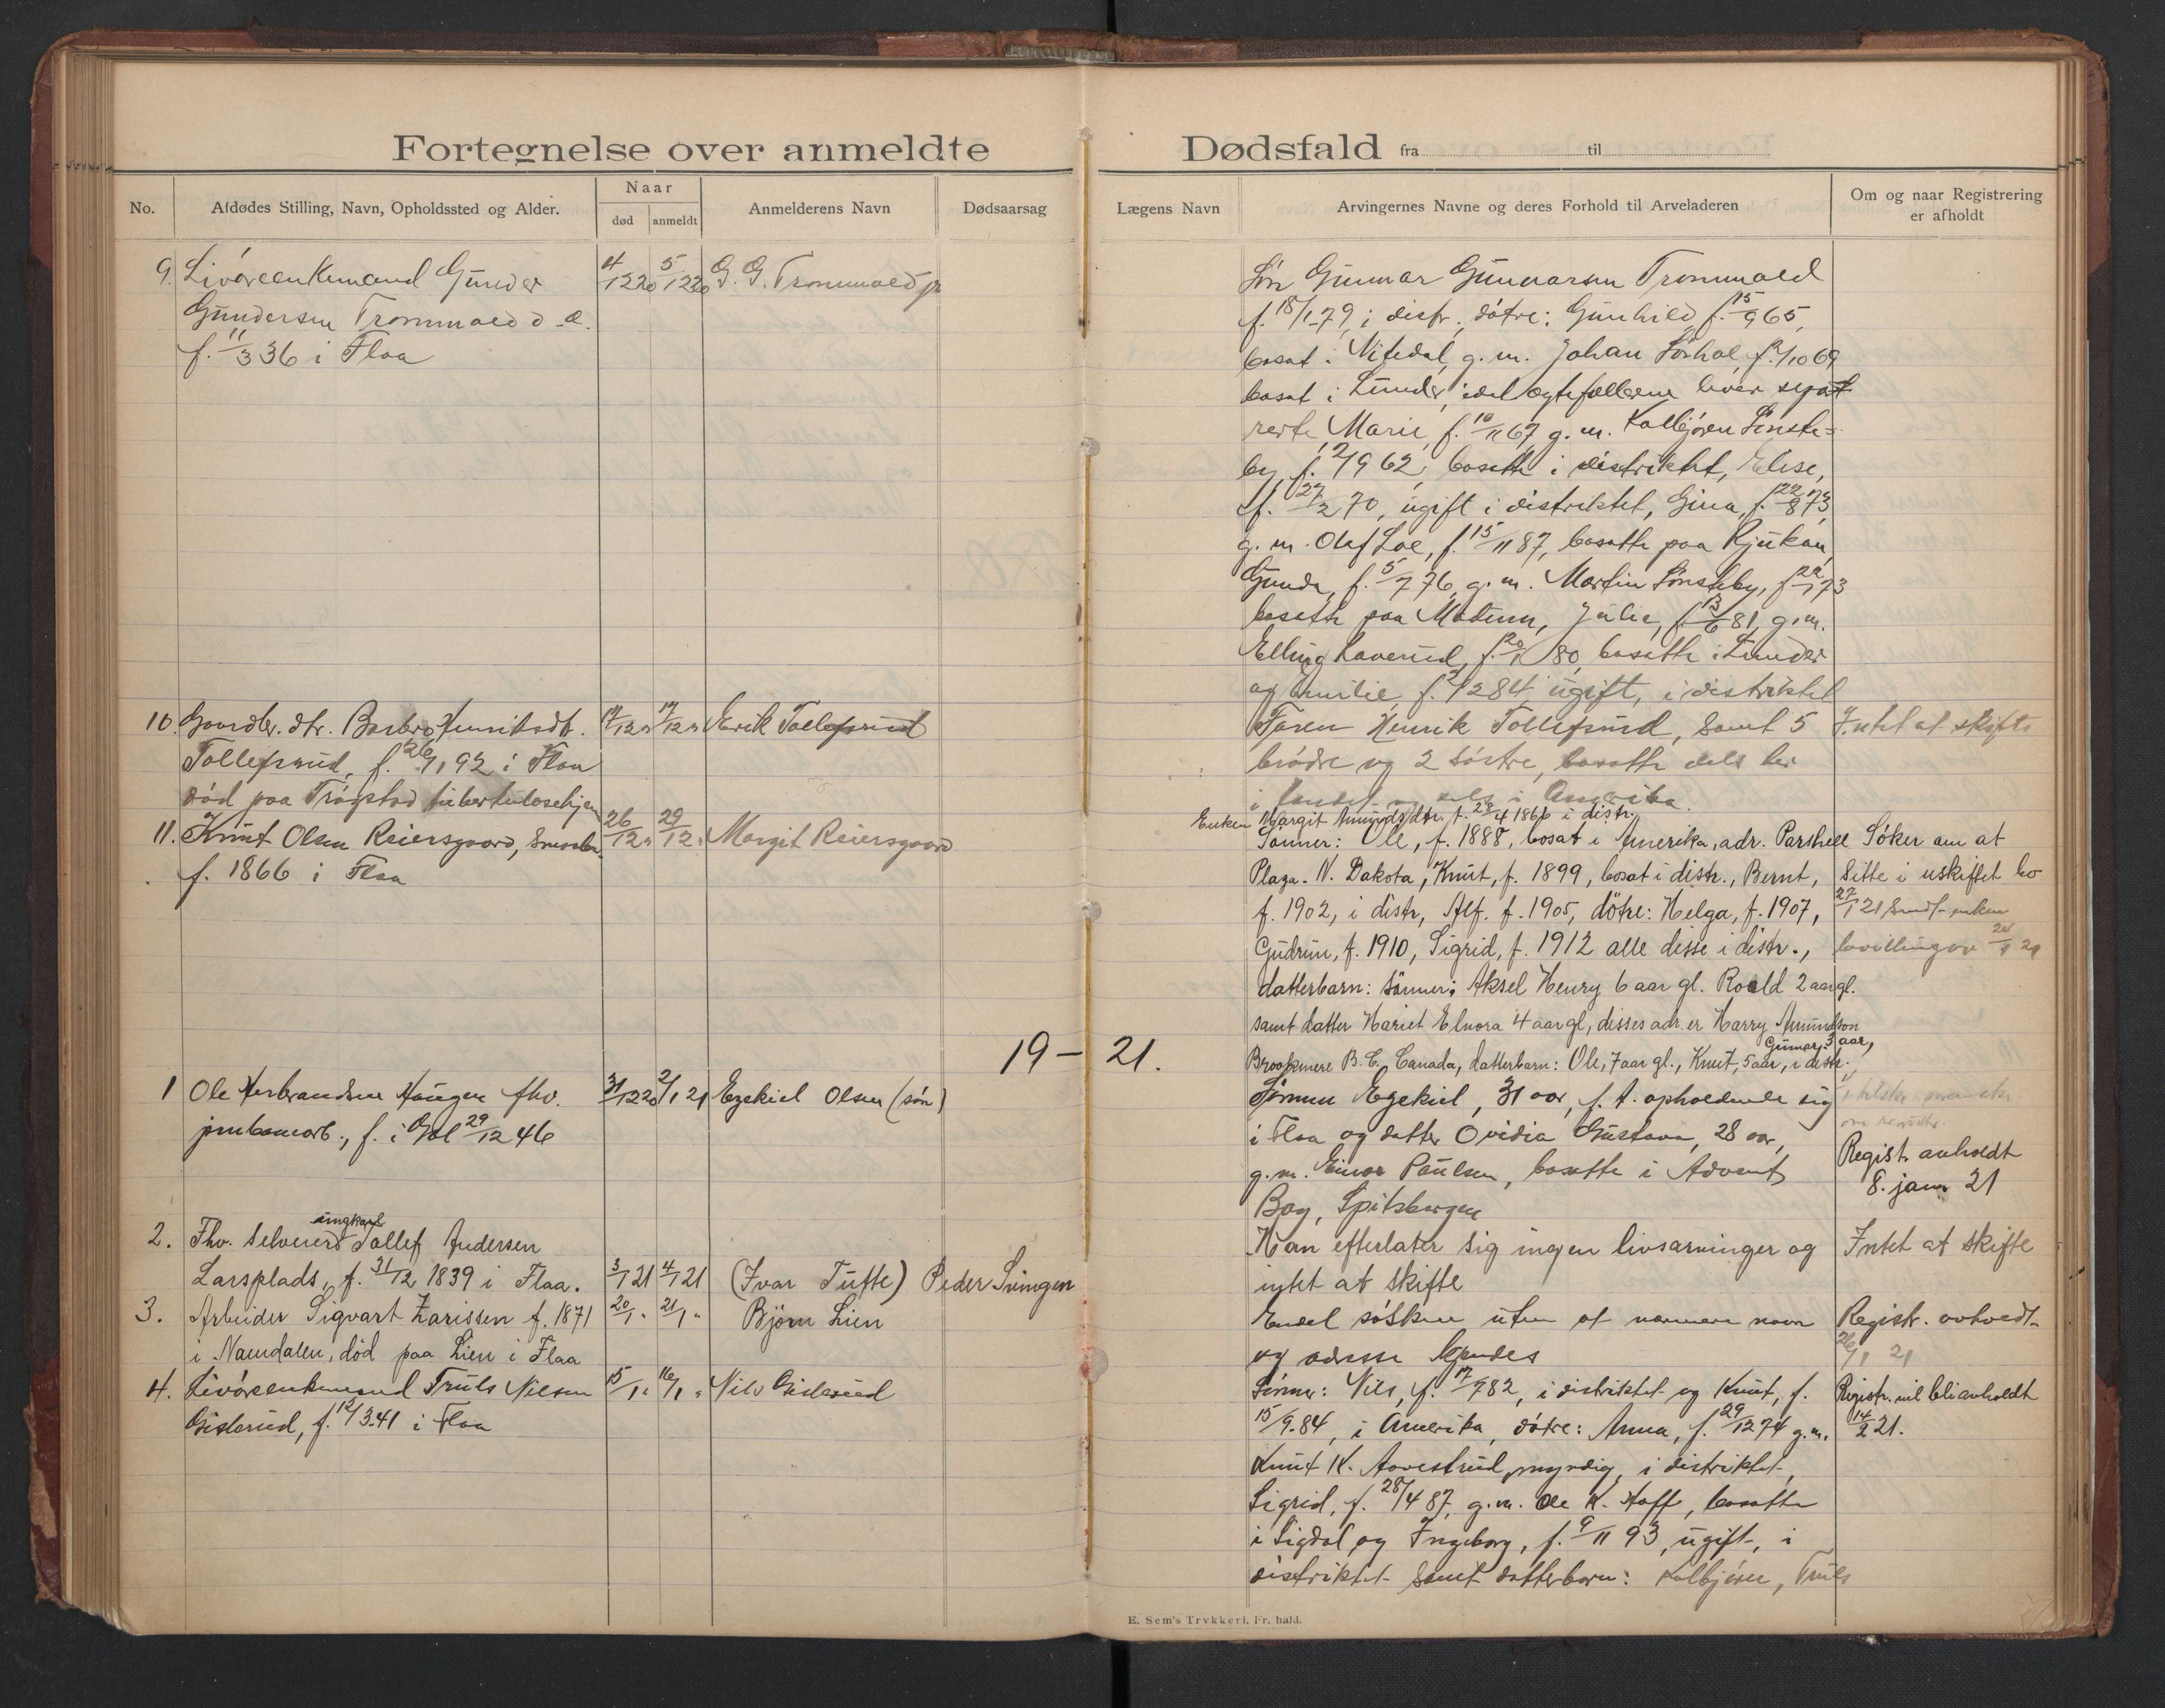 Fortegnelse over anmeldte Dødsfald fra til
No.
Afdødes Stilling, Navn, Opholdssted og Alder.
Naar
død anmeldt
Anmelderens Navn
Dødsaarsag
Lægens Navn
Arvingernes Navne og deres Forhold til Arveladeren
Om og naar Registrering
er afholdt
9. Livøreenkemand Gunder 4/12 20 5/12 20 G. G. Trommald jr
Gundersen Trommald d.e.
f. 11/3 36 i Flaa
Søn Gunnar Gunnarsen Trommald
f. 18/1 79, i distr., døtre: Gunhild, f. 15/9 65,
bosat i Nitedal, g.m. Johan Sørhol, f. /10 69
bosat i Lunder, idet ægtefællerne lever sepa-
rerte, Marie, f. 10/11 67, g.m. Kolbjørn Sønste-
by, f. 2/9 62, bosatte i distriktet, Elise,
f. 27/2 70, ugift i distriktet, Gina, f. 22/8 73,
g.m. Olaf Loe, f. 15/11 87, bosatte paa Rjukan,
Gunda, f. 5/7 76, g.m. Martin Sønsteby, f. 22/1 73
bosatte paa Modum, Julie, f. 13/6 81, g.m.
Elling Laverud, f. 20/1 80, bosatte i Lunder
og Emilie, f. 2/2 84 ugift, i distriktet
10. Gaardbr. dtr. Barbro Henriksdt. 17/12 " 17/12 " Erik Tollefsrud
Tollefsrud, f. 26/1 92 i Flaa
død paa Trøgstad tuberkulosehjem
Faren Henrik Tollefsrud, samt 5
brødre og 2 søstre, bosatte dels her
i landet og dels i Amerika.
Intet at skifte
11. Knut Olsen Reiersgaard, 26/12 " 29/12 " Margit Reiersgaard
f. 1866 i Flaa
Enken Margit Amundsdtr. f. 29/4 1866 i distr.
Sønner: Ole, f. 1888, bosat i Amerika, adr. Parshell
Plaza. N. Dakota, Knut, f. 1899, bosat i distr., Bernt,
f. 1902, i distr, Alf. f. 1905, døtre: Helga, f. 1907,
Gudrun, f. 1910, Sigrid, f. 1912 alle disse i distr.,
datterbarn: sønner: Aksel Henry 6 aar gl. Roald 2 aar gl.
samt datter Hariet Elnora 4 aar gl, disses adr. er Harry Amundson
Brookmere B. C. Canada, datterbarn: Ole, 7 aar gl., Knut, 5 aar, Gunnar, 3 aar, i distr.
Søker om at
sitte i uskiftet bo
27/1 21 sendt enken
bevillingen
19 – 21.
1 Ole Herbrandsen Haugen fhv. 31/12 20 2/1 21 Ezekiel Olsen (søn)
jernbanearb., f. i Gol 29/12 46
Sønnen Ezekiel, 31 aar, f.t. opholdende sig
i Flaa og datter Ovidia Gustava, 28 aar,
g.m. Einar Paulsen, bosatte i Advent
Bay, Spitsbergen
Regist. avholdt
8. jan 21
2. Fhv. selveierungkarl Tollef Andersen
Larsplads, f. 31/12 1839 i Flaa. 3/1 21 4/1 21 (Ivar Tufte) Peder Svingen
Han efterlater sig ingen livsarvinger og
intet at skifte
Intet at skifte
3. Arbeider Sigvart Larissen f. 1871 20/1 " 21/1 " Bjørn Lien
i Namdalen, død paa Lien i Flaa
Endel søsken uten at nærmere navn
og adresse kjendes
Registr. avholdt
26/1 21
4. Livøreenkemand Truls Nilsen 15/1 " 16/1 " Nils Gislerud
Gislerud, f. 12/3 41 i Flaa
Sønner: Nils, f. 17/9 82, i distriktet og Knut, f.
15/9 84, i Amerika, døtre: Anna, f. 29/12 74 g.m.
Knut K. Aavestrud, myndig, i distriktet,
Sigrid, f. 28/4 87, g.m. Ole K. Hoff, bosatte
i Sigdal og Ingeborg, f. 9/11 93, ugift, i
distriktet samt datterbarn: Kolbjørn, Truls
Registr. vil bli avholdt
14/2 21.
E. Sem's Trykkeri, Fr. hald.